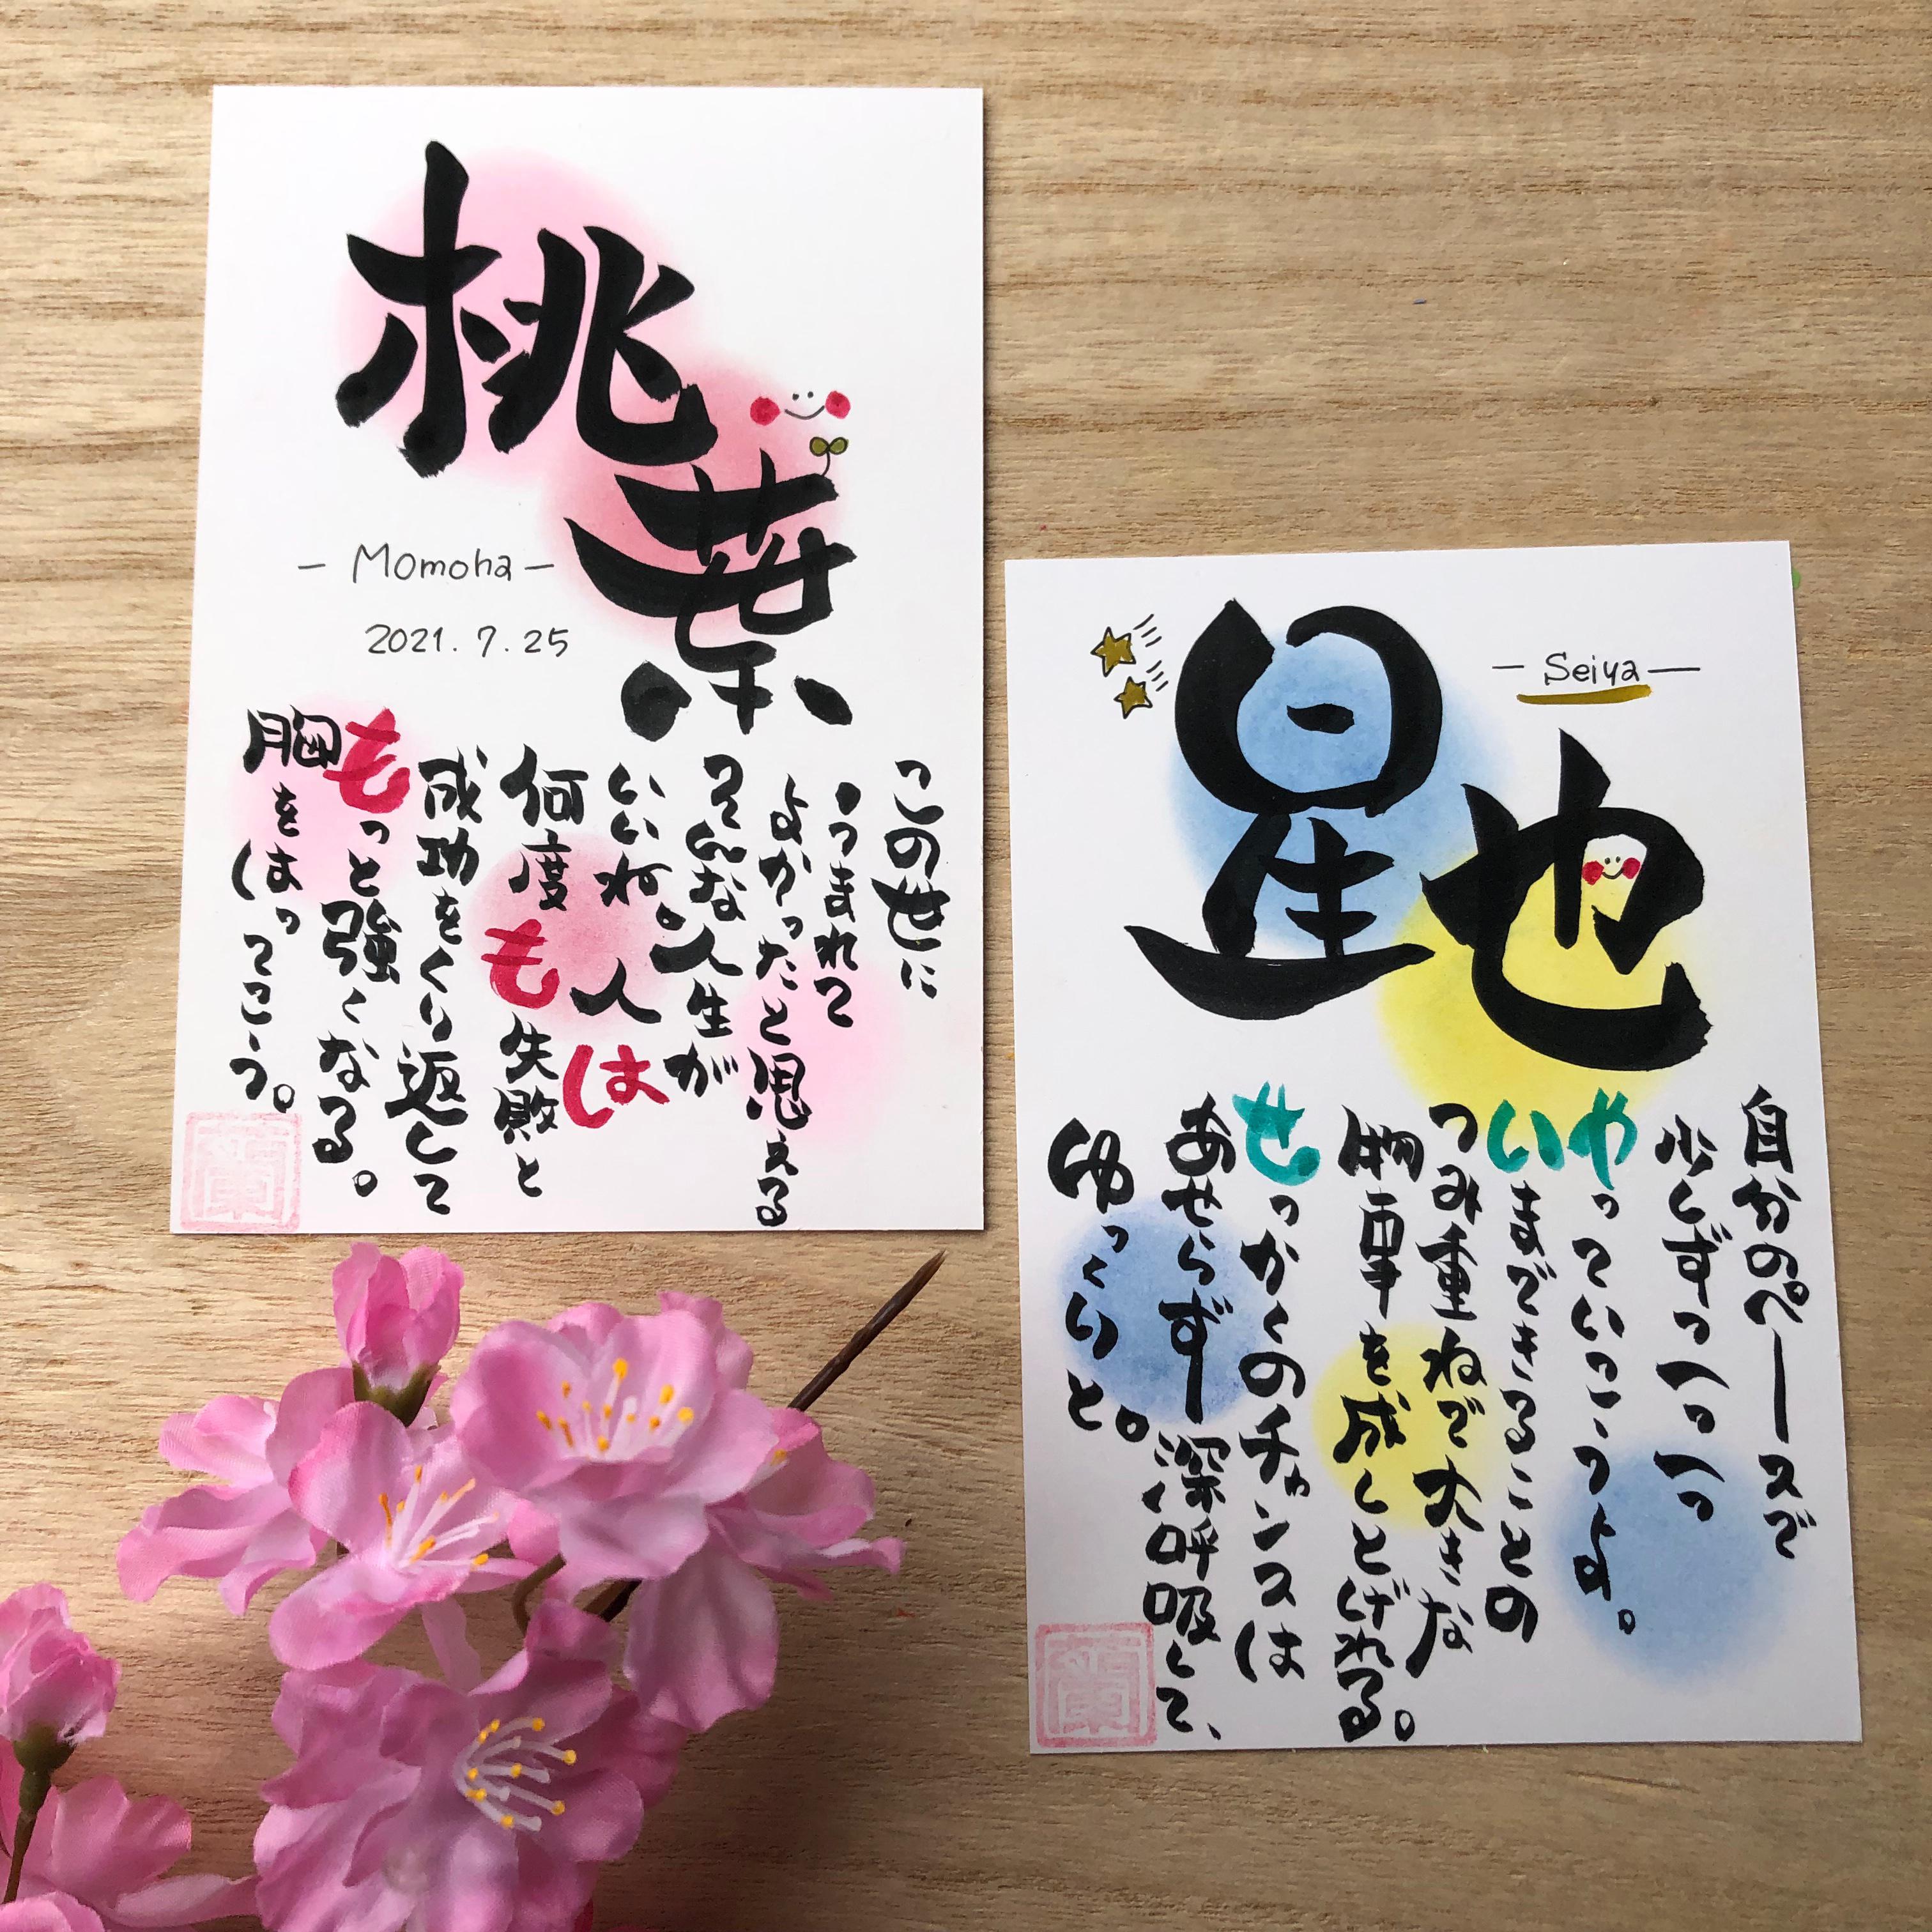 桃葉
- Momoha -
2021.7.25
この世に
うまれて
よかったと思える
そんな人生が
いいね。人は
何度も失敗と
成功をくり返して
もっと強くなる。
胸をはってこう。
星也
- Seiya -
自分のペースで
少しずつ一つ一つ
やっていこうよ。
いまできることの
つみ重ねで大きな
物事を成しとげれる。
せっかくのチャンスは
あせらず深呼吸して、
ゆっくりと。